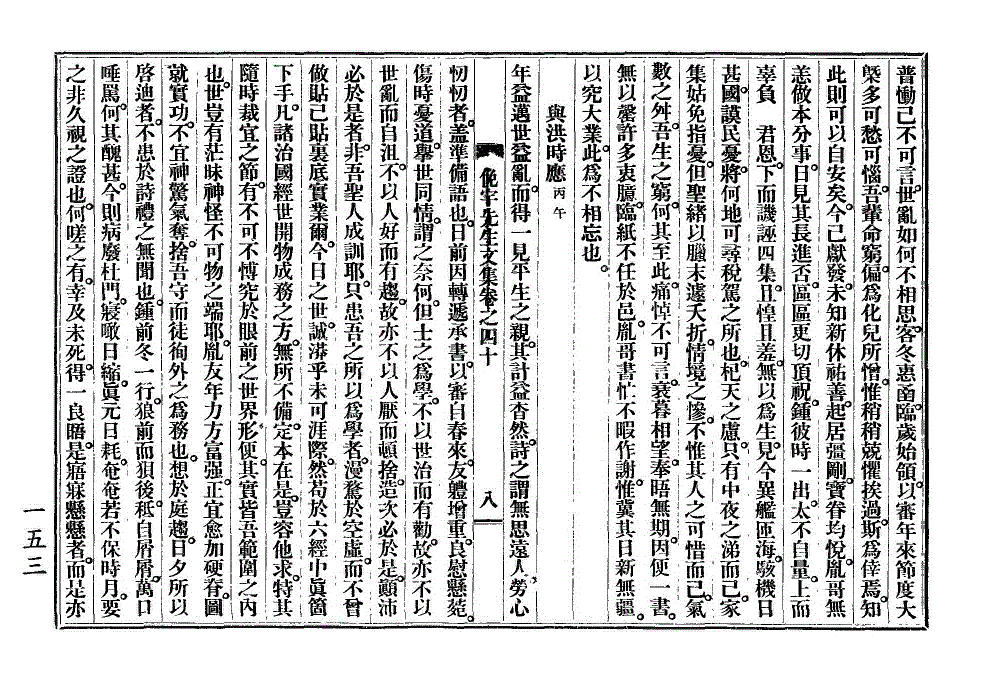 普慟已不可言。世亂如何不相思。客冬惠函。臨歲始領。以審年來節度大
槩多可愁可惱。吾輩命窮。偏爲化兒所憎。惟稍稍兢懼挨過。斯爲倖焉。知
此則可以自安矣。今已獻發。未知新休祐善。起居彊剛。寶眷均悅。胤哥無
恙。做本分事。日見其長進否。區區更切頂祝。鍾彼時一出。太不自量。上而
辜負　君恩。下而譏誣四集。且惶且羞。無以爲生。見今異艦匝海。駭機日
甚。國謨民憂。將何地可尋稅駕之所也。杞天之慮。只有中夜之涕而已。家
集姑免指憂。但聖緖以臘末遽夭折。情境之慘。不惟其人之可惜而已。氣
數之舛。吾生之窮。何其至此。痛悼不可言。衰暮相望。奉晤無期。因便一書。
無以罄許多衷臆。臨紙不任於邑。胤哥書。忙不暇作謝。惟冀其日新無疆。
以究大業。此爲不相忘也。
與洪時應 丙午
年益邁世益亂。而得一見平生之親。其計益杳然。詩之謂無思遠人。勞心
俛宇先生文集卷之四十　八
忉忉者。盖準備語也。日前因轉遞承書。以審自春來。友軆增重。良慰懸菀。
傷時憂道。擧世同情。謂之奈何。但士之爲學。不以世治而有勸。故亦不以
世亂而自沮。不以人好而有趨。故亦不以人厭而頓捨。造次必於是。顚沛
必於是者。非吾聖人成訓耶。只患吾之所以爲學者。漫騖於空虛。而不曾
做貼己貼裏底實業爾。今日之世。誠漭乎未可涯際。然苟於六經中眞箇
下手。凡諸治國經世開物成務之方。無所不備。定本在是。豈容他求。特其
隨時裁宜之節。有不可不博究於眼前之世界形便。其實皆吾範圍之內
也。世豈有茫昧神怪不可物之端耶。胤友年力方富强。正宜愈加硬脊。圖
就實功。不宜神驚氣奪。捨吾守而徒徇外之爲務也。想於庭趨。日夕所以
啓迪者。不患於詩禮之無聞也。鍾前冬一行。狼前而狽後。秪自屑屑。萬口
唾罵。何其醜甚。今則病廢杜門。寢噉日縮。眞元日耗。奄奄若不保時月。要
之非久視之證也。何嗟之有。幸及未死。得一良晤。是寤寐懸懸者。而是亦
一五三